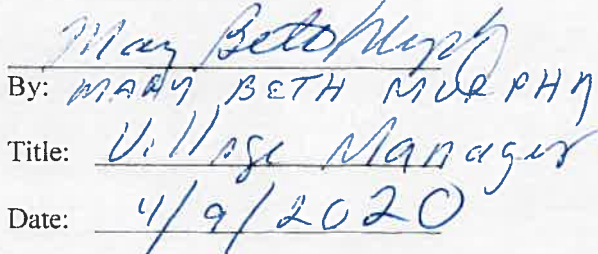 Mary Beth Murphy
By: MARY BETH MURPHY
Title: Village Manager
Date: 4/9/2020